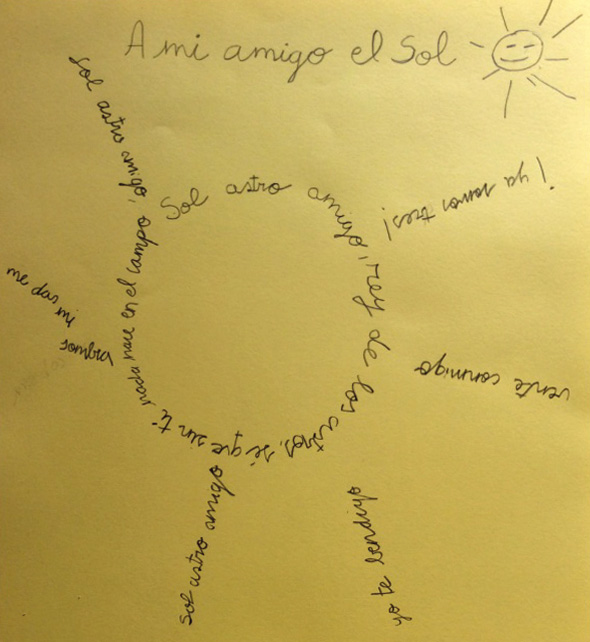 A mi amigo el Sol
Sol astro amigo, rey de los astros, sé que sin ti nada nace en el campo,
sol astro amigo
me das mi
sombra
Sol astro amigo
yo te bendigo
vente conmigo
¡ya somos tres!